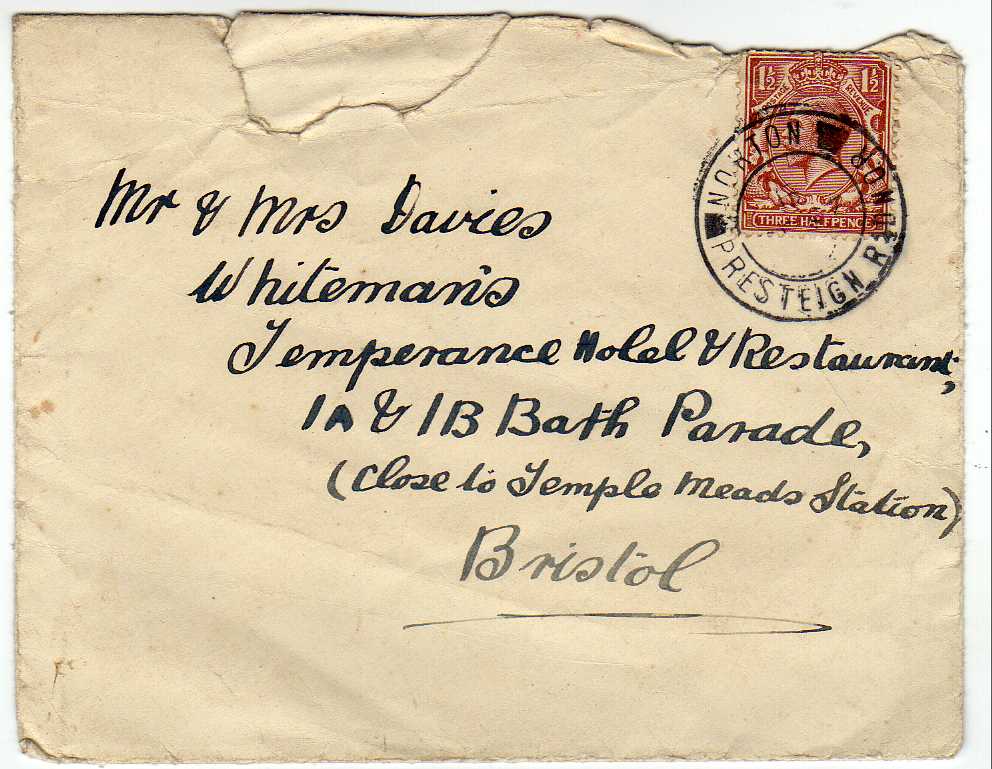 1½ 1½
POSTAGE REVENUE
THREE HALFPENCE
NORTON
PRESTEIGN
Mr & Mrs Davies
Whiteman's
Temperance Hotel & Restaurant,
1A & 1B Bath Parade,
(Close to Temple Meads Station)
Bristol